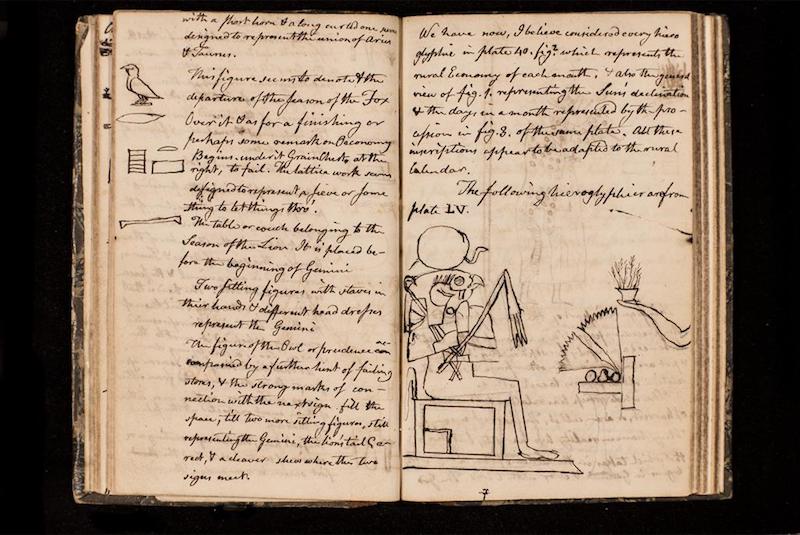 with a short horn & a long curled one seems
designed to represent the union of Aries
& Taurus.
This figure seems to denote & the
departure of the season of the Fox
Over it & as for a finishing or
perhaps some remark on Oeconomy
Begins. under it Grain Chests at the
right, to fail. The lattice work seems
designed to represent a sieve or some
thing to let things thro'.
The table or couch belonging to the
Season of the Lion It is placed be-
fore the beginning of Gemini
Two sitting figures with staves in
their hands & different head dresses
represent the Gemini
The figure of the Owl or prudence ac-
companied by a further hint of failing
stores, & the strong marks of con-
nection with the next sign fill the
space, till two more sitting figures, still
representing the Gemini, the lions tail
rect, & a cleaver shews where the two
signs meet.
We have now, I believe considered every hiero
glyphic in plate 40. fig. 2 which represents the
rural Economy of each month, & also the general
view of fig. 1. representing the Sun's declination
& the days in a month represented by the pro-
cession in fig. 3. of the same plate. All these
inscriptions appear to be adapted to the rural
Calendar.
The following hieroglyphics are from
plate LV.
7